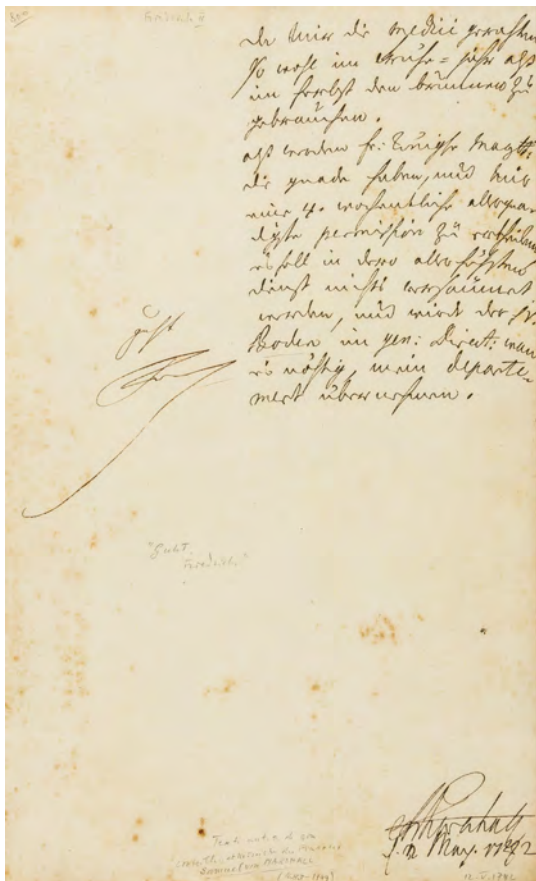 Friedrich II
da mir die medici gerahten
so wohl im Früh=jahr alß
im herbst den brunnen zu
gebrauchen.
alß werden Er: Königl: Maytt:
die gnade haben, und mir
eine 4. wochentliche allergnä-
digste permission zu ertheilen
es soll in dero allerhöchsten
dienst nichts versäumet
werden, und wird der Hr.
Boden im gen: Direct: wan
es nöhtig, mein departe-
ment übernehmen.
guht
Fr
"guht
Friederich"
Marschall
d. 12 May. 1742
12. V. 1742
Samuel von MARSCHALL